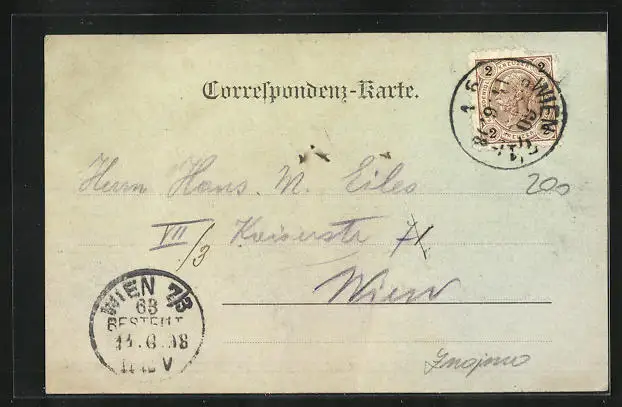 Correspondenz-Karte.
2 2
2 2
WIEN
Herrn Hans. M. Eiles
VII/3 Kaiserstr
Wien
200
WIEN 7/3
63
BESTELLT
11.6.98
V